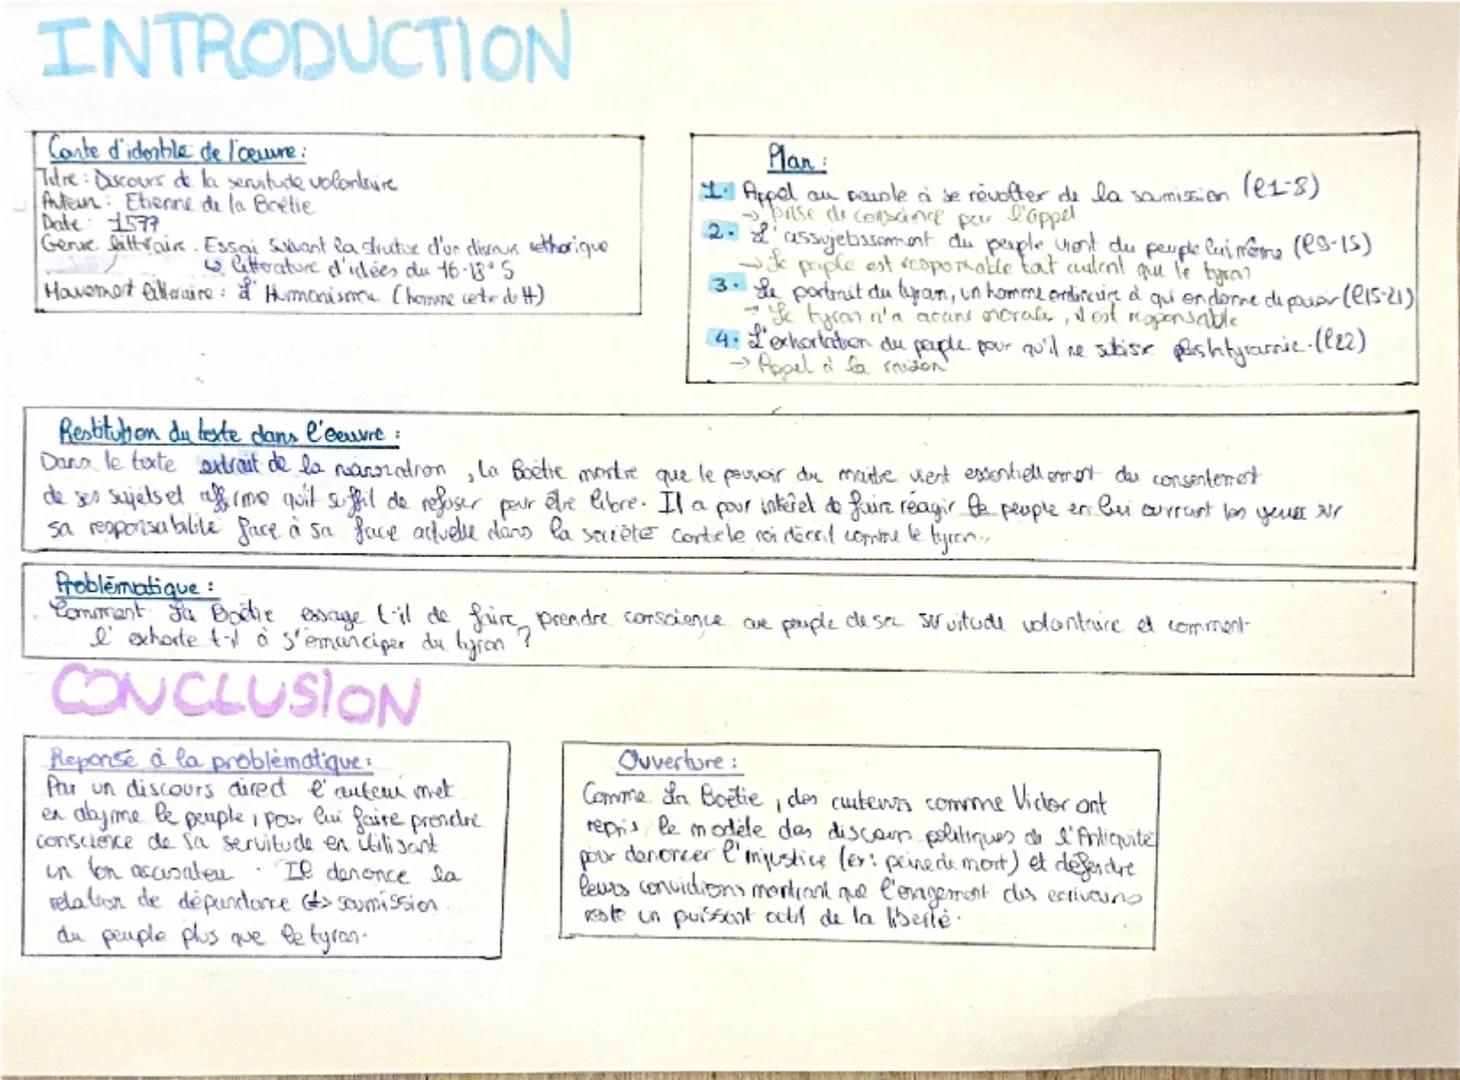 INTRODUCTION
Carte d'identité de l'œuvre :
Titre : Discours de la servitude volontaire
Auteur : Etienne de la Boétie
Date : 1577
Genre littéraire : Essai suivant la structure d'un discours rethorique
↳ littérature d'idées du 16-18° S
Mouvement littéraire : L'Humanisme (homme centre du H)
Plan :
1. Appel au peuple à se révolter de la soumission (l1-8)
→ prise de conscience par l'appel
2. L'assujetissement du peuple vient du peuple lui même (l9-15)
→ Le peuple est responsable tout autant que le tyran
3. Le portrait du tyran, un homme ordinaire à qui on donne du pouvoir (l15-21)
→ Le tyran n'a aucune morale, il est responsable
4. L'exhortation du peuple pour qu'il ne subisse plus la tyrannie. (l22)
→ Appel à la raison
Restitution du texte dans l'oeuvre :
Dans le texte extrait de la narration, La Boétie montre que le pouvoir du maitre vient essentiellement du consentement
de ses sujets et affirme qu'il suffit de refuser pour être libre. Il a pour intérêt de faire réagir le peuple en lui ouvrant les yeux sur
sa responsabilité face à sa face actuelle dans la société contre le roi décrit comme le tyran.
Problématique :
Comment La Boétie essaye t-il de faire prendre conscience au peuple de sa servitude volontaire et comment
l'exhorte t-il à s'émanciper du tyran ?
CONCLUSION
Réponse à la problématique :
Par un discours direct l'auteur met
en abyme le peuple, pour lui faire prendre
conscience de sa servitude en utilisant
un ton accusateur. Il denonce la
relation de dépendance <=> soumission
du peuple plus que le tyran.
Ouverture :
Comme La Boétie, des auteurs comme Victor ont
repris le modèle des discours politiques de l'Antiquité
pour denoncer l'injustice (ex : peine de mort) et défendre
leurs convictions montrant que l'engagement des écrivains
reste un puissant outil de la liberté.